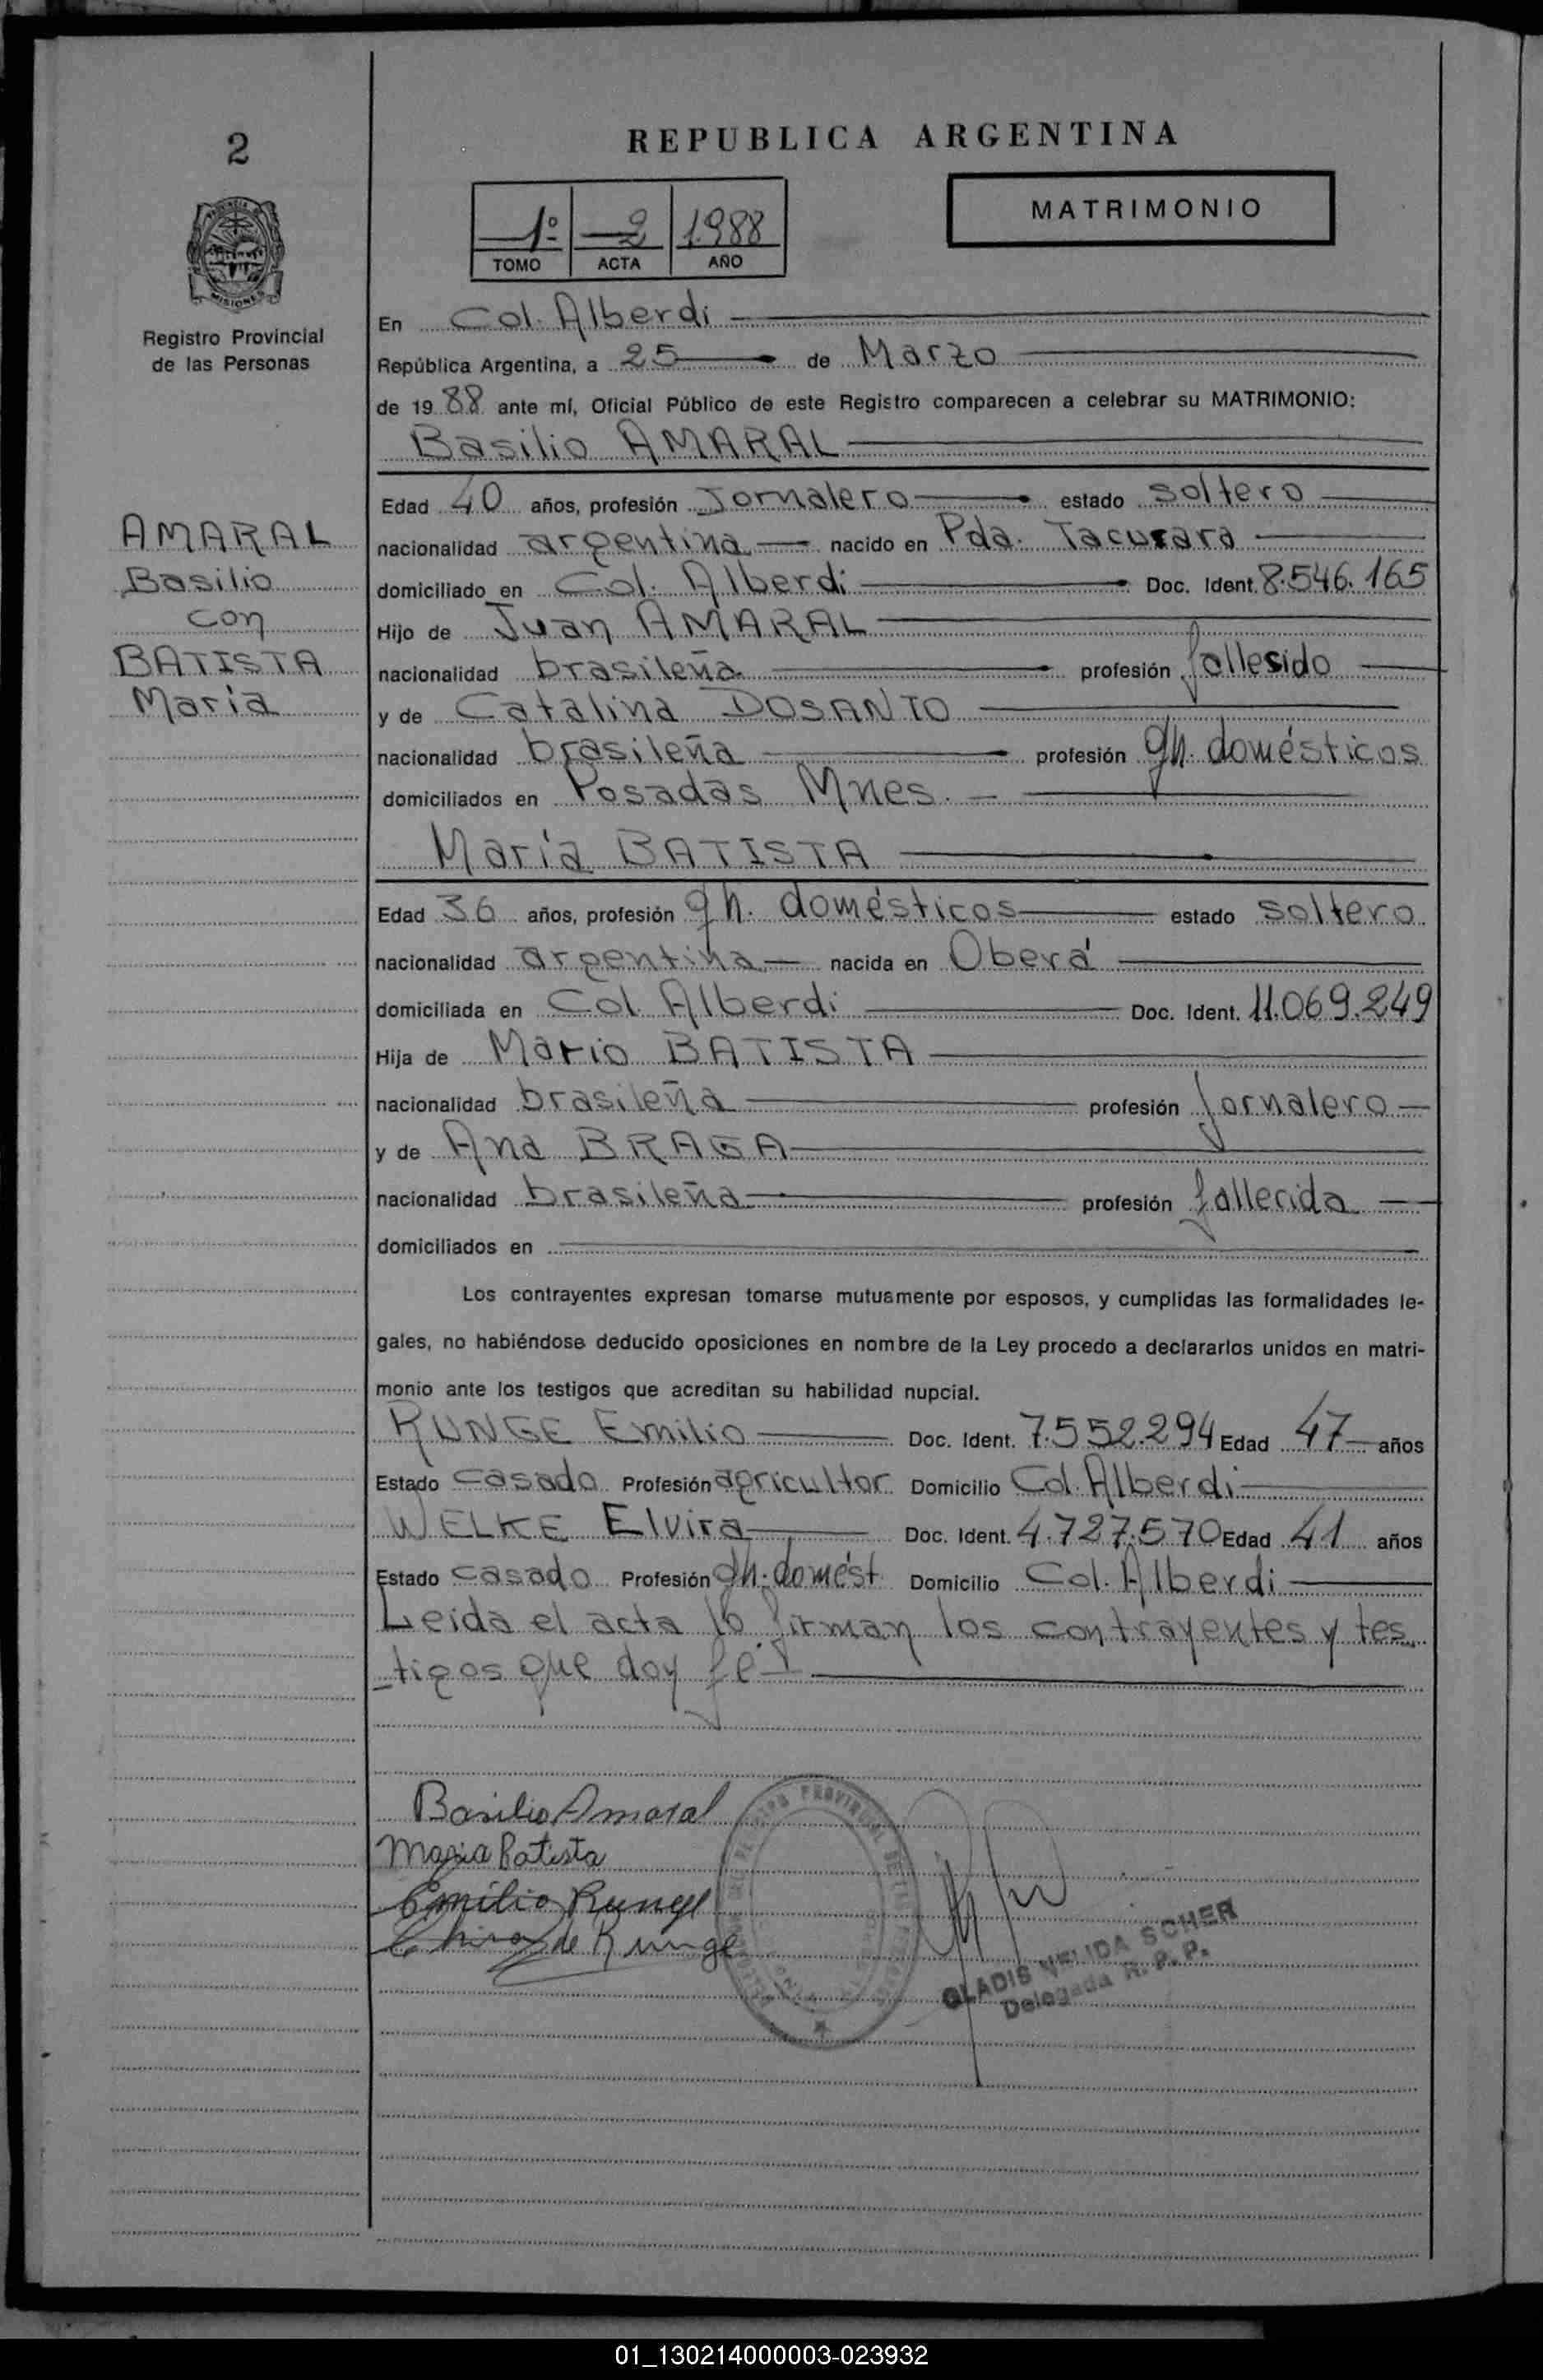 2
REPUBLICA ARGENTINA
MATRIMONIO
1º 2 1988
TOMO ACTA AÑO
MISIONES
Registro Provincial
de las Personas
AMARAL
Basilio
con
BATISTA
María
En Col. Alberdi
República Argentina, a 25 de Marzo
de 1988 ante mí, Oficial Público de este Registro comparecen a celebrar su MATRIMONIO:
Basilio AMARAL
Edad 40 años, profesión Jornalero estado soltero
nacionalidad argentina nacido en Pda. Tacurara
domiciliado en Col. Alberdi Doc. Ident. 8.546.165
Hijo de Juan AMARAL
nacionalidad brasileña profesión fallesido
y de Catalina DOSANTO
nacionalidad brasileña profesión qh. domésticos
domiciliados en Posadas Mnes.
María BATISTA
Edad 36 años, profesión qh. domésticos estado soltero
nacionalidad argentina nacida en Oberá
domiciliada en Col. Alberdi Doc. Ident. 11.069.249
Hija de Mario BATISTA
nacionalidad brasileña profesión Jornalero
y de Ana BRAGA
nacionalidad brasileña profesión fallecida
domiciliados en
Los contrayentes expresan tomarse mutuamente por esposos, y cumplidas las formalidades le-
gales, no habiéndose deducido oposiciones en nombre de la Ley procedo a declararlos unidos en matri-
monio ante los testigos que acreditan su habilidad nupcial.
RUNGE Emilio Doc. Ident. 7.552.294 Edad 47 años
Estado casado Profesión agricultor Domicilio Col. Alberdi
WELKE Elvira Doc. Ident. 4.727.570 Edad 41 años
Estado casado Profesión qh. domést. Domicilio Col. Alberdi
Leida el acta lo firman los contrayentes y tes
tigos que doy fe
Basilio Amaral
Maria Batista
Emilio Runge
de Runge
GLADIS NELIDA SCHER
Delegada R. P. P.
01_130214000003-023932